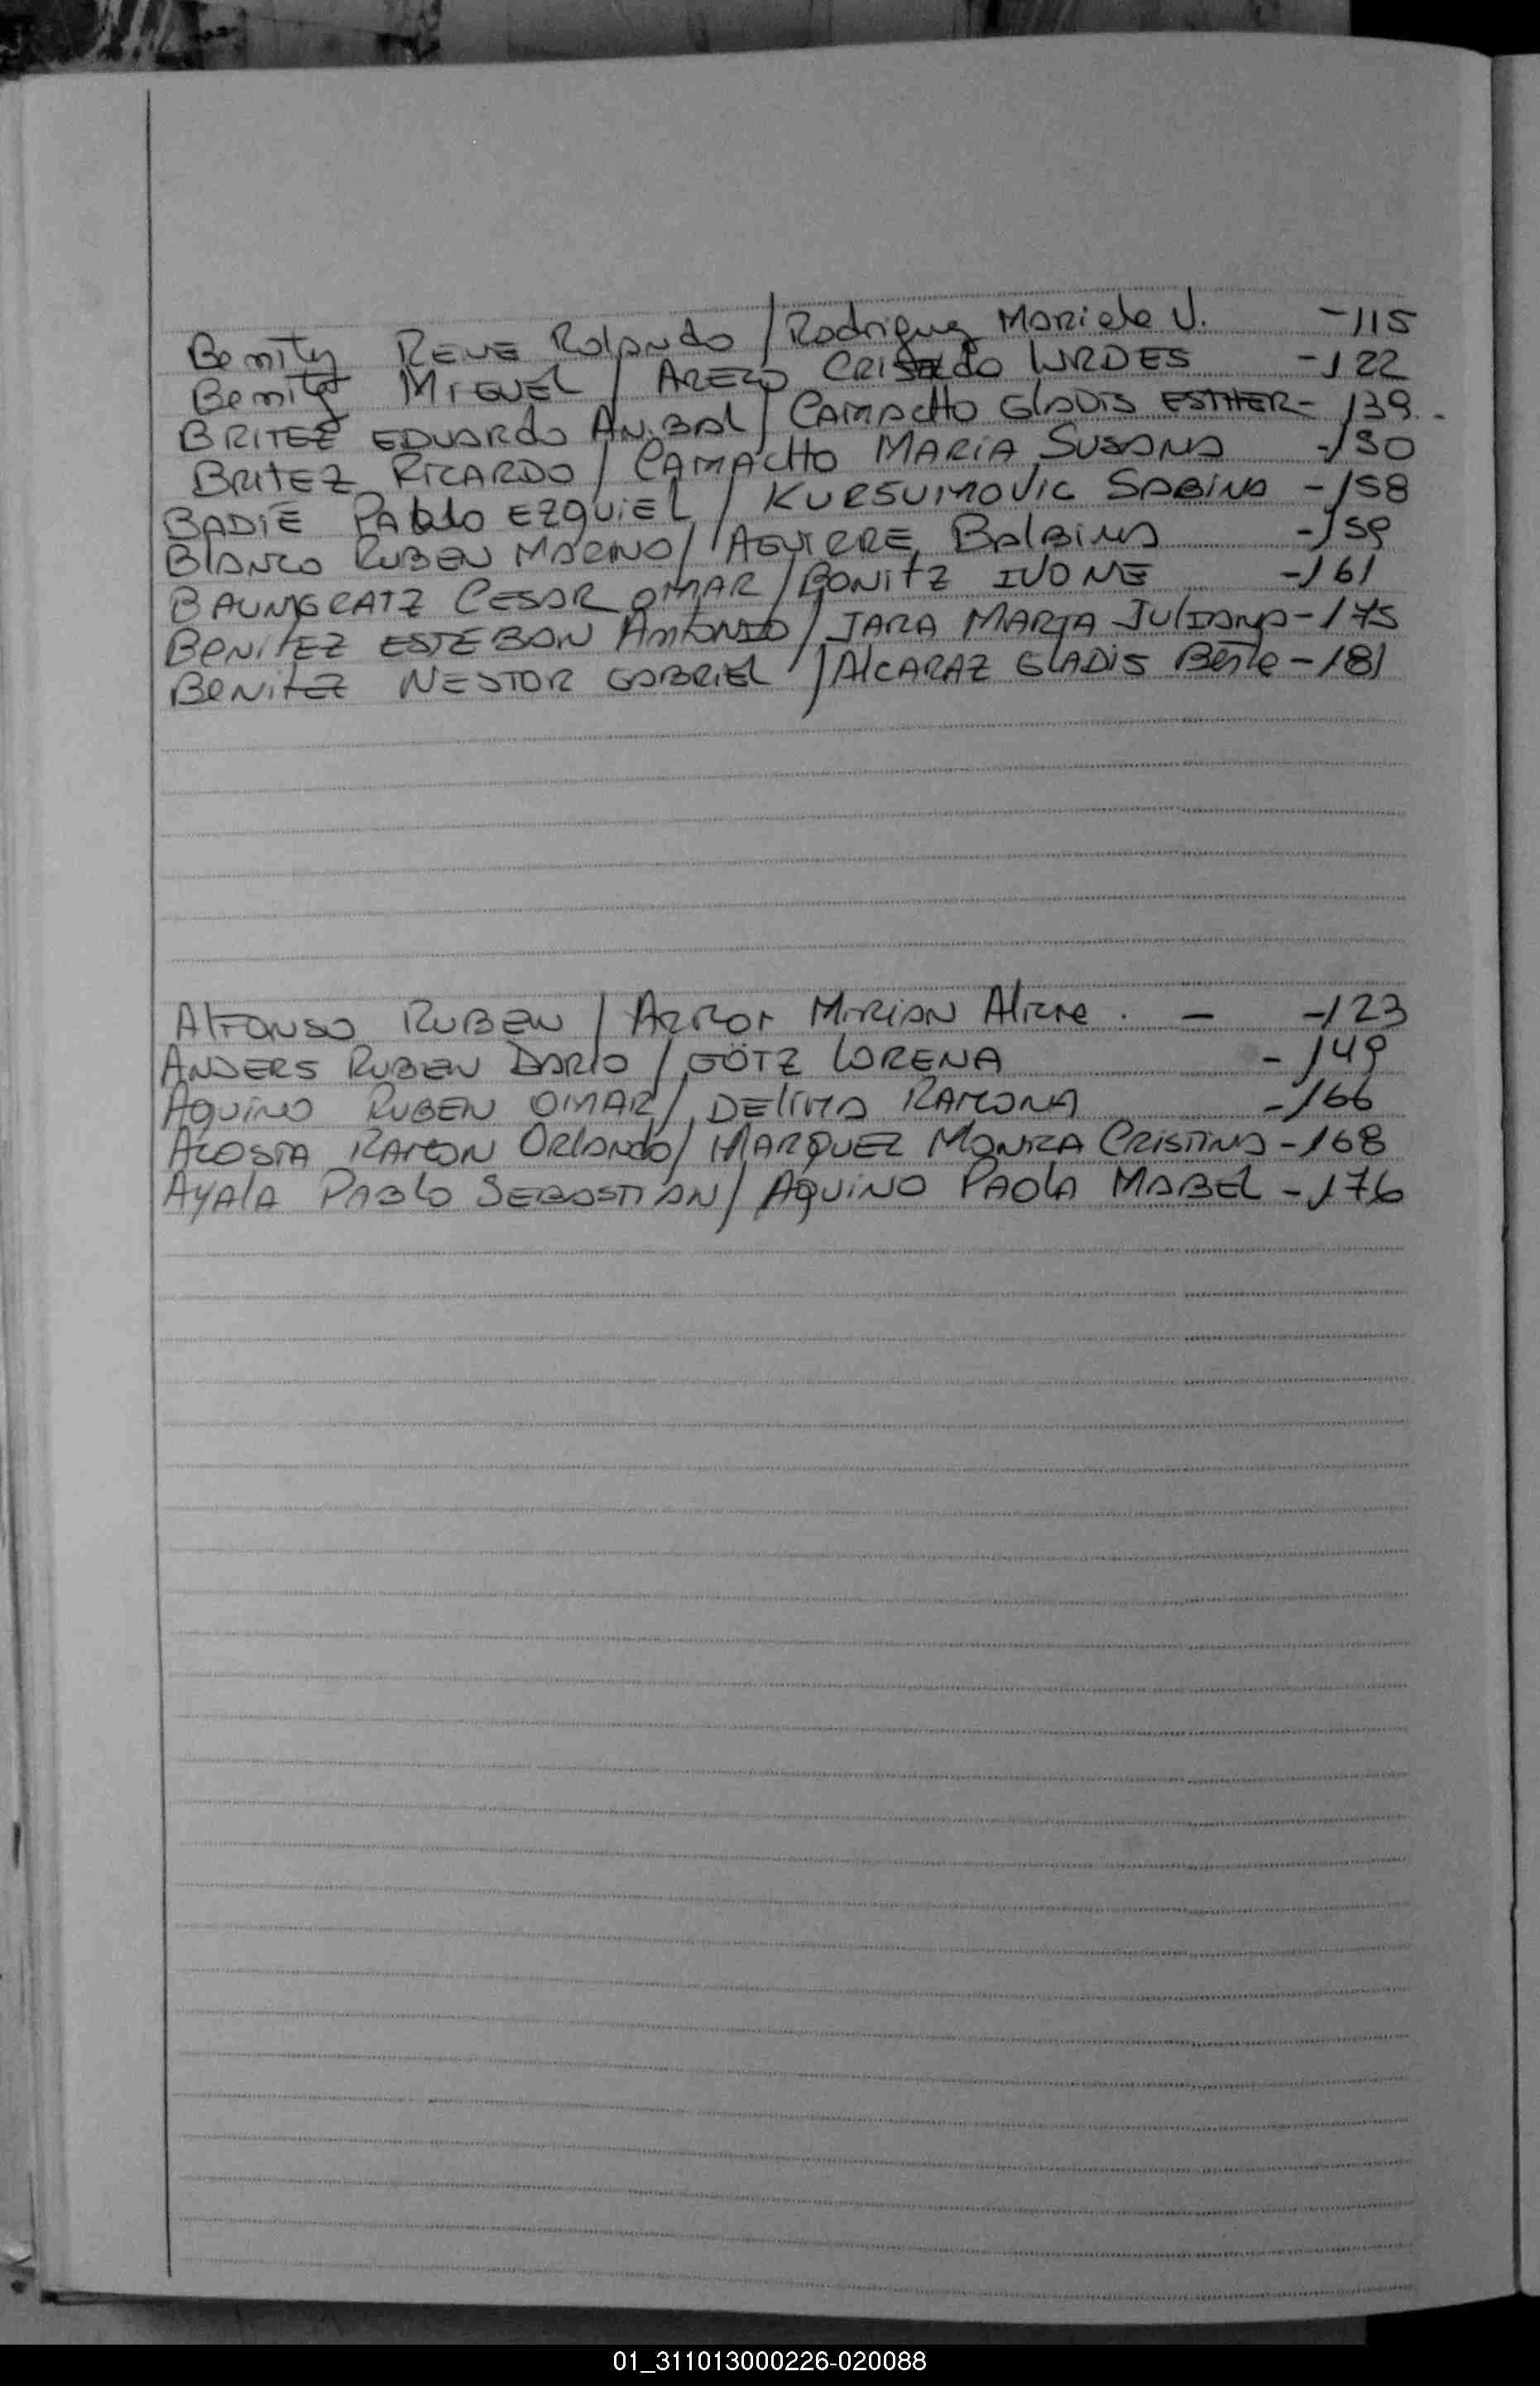 Benitez RENE Rolando / Rodriguez Mariela V. -115
Benitez MIGUEL / AREco CRISaldo LURDES -122
BRITEZ EDUARdo ANiBAL / CAMACHO GLADIS ESTHER - 139.
BRITEZ RICARDO / CAMACHO MARIA SUSANA -150
BADIE PAblo EZQUIEL / KURSUMOVIC SABINA -158
BlANCO RUBEN MARINO / AGUIRRE BalBINA -159
BAUMGRATZ CESAR OMAR / BONITZ IVONNE -161
BENITEZ ESTEBAN ANTONIO / JARA MARTA JulIANA -175
BENITEZ NESTOR GABRIEL / AlCARAZ GLADIS -181
AlFONSO RUBEN / MIRIAN Alicre . - -123
ANDERS RUBEN DARIO / GÖTZ LORENA - 149
AQUINO RUBEN OMAR / DELIMA RAMONA -166
ACOSTA RAMON ORLANDO / MARQUEZ MONICA CRISTINA -168
AYAlA PABLO SEBASTIAN / AQUINO PAOLA MABEL -176
01_311013000226-020088